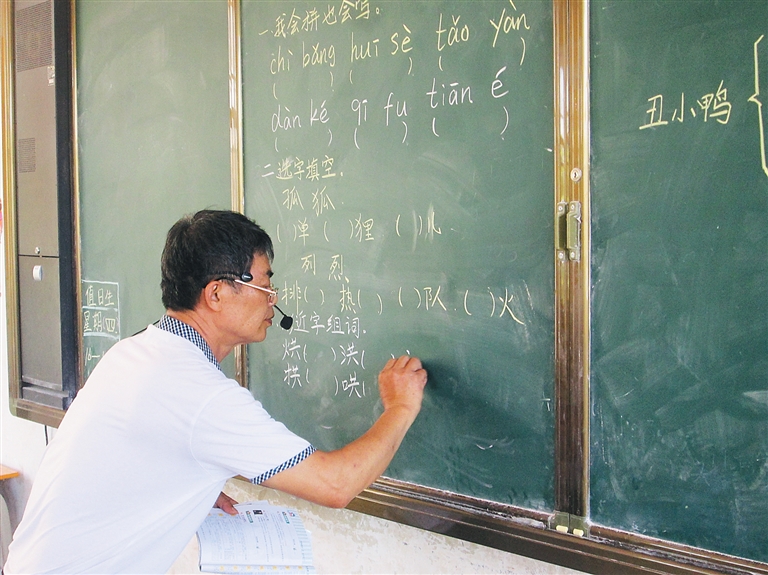 一.我会拼也会写。
chì bǎng huī sè tǎo yàn
( ) ( ) ( )
dàn ké qī fu tiān é
( ) ( ) ( )
二.选字填空.
孤 狐.
( )单 ( )狸 ( )儿.
列 烈.
排( ) 热( ) ( )队. ( )火
近字组词.
烘( ) 洪(
拱( ) 哄(
丑小鸭
值日生
星期四